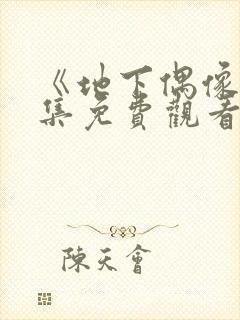 《地下偶像
集免費觀看
陳天會